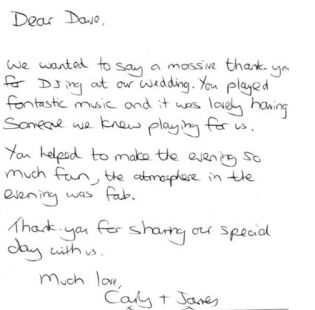 Dear Dave,
We wanted to say a massive thank-you
for DJing at our wedding. You played
fantastic music and it was lovely having
Someone we knew playing for us.
You helped to make the evening so
much fun, the atmosphere in the
evening was fab.
Thank-you for sharing our special
day with us.
Much love,
Carly + James